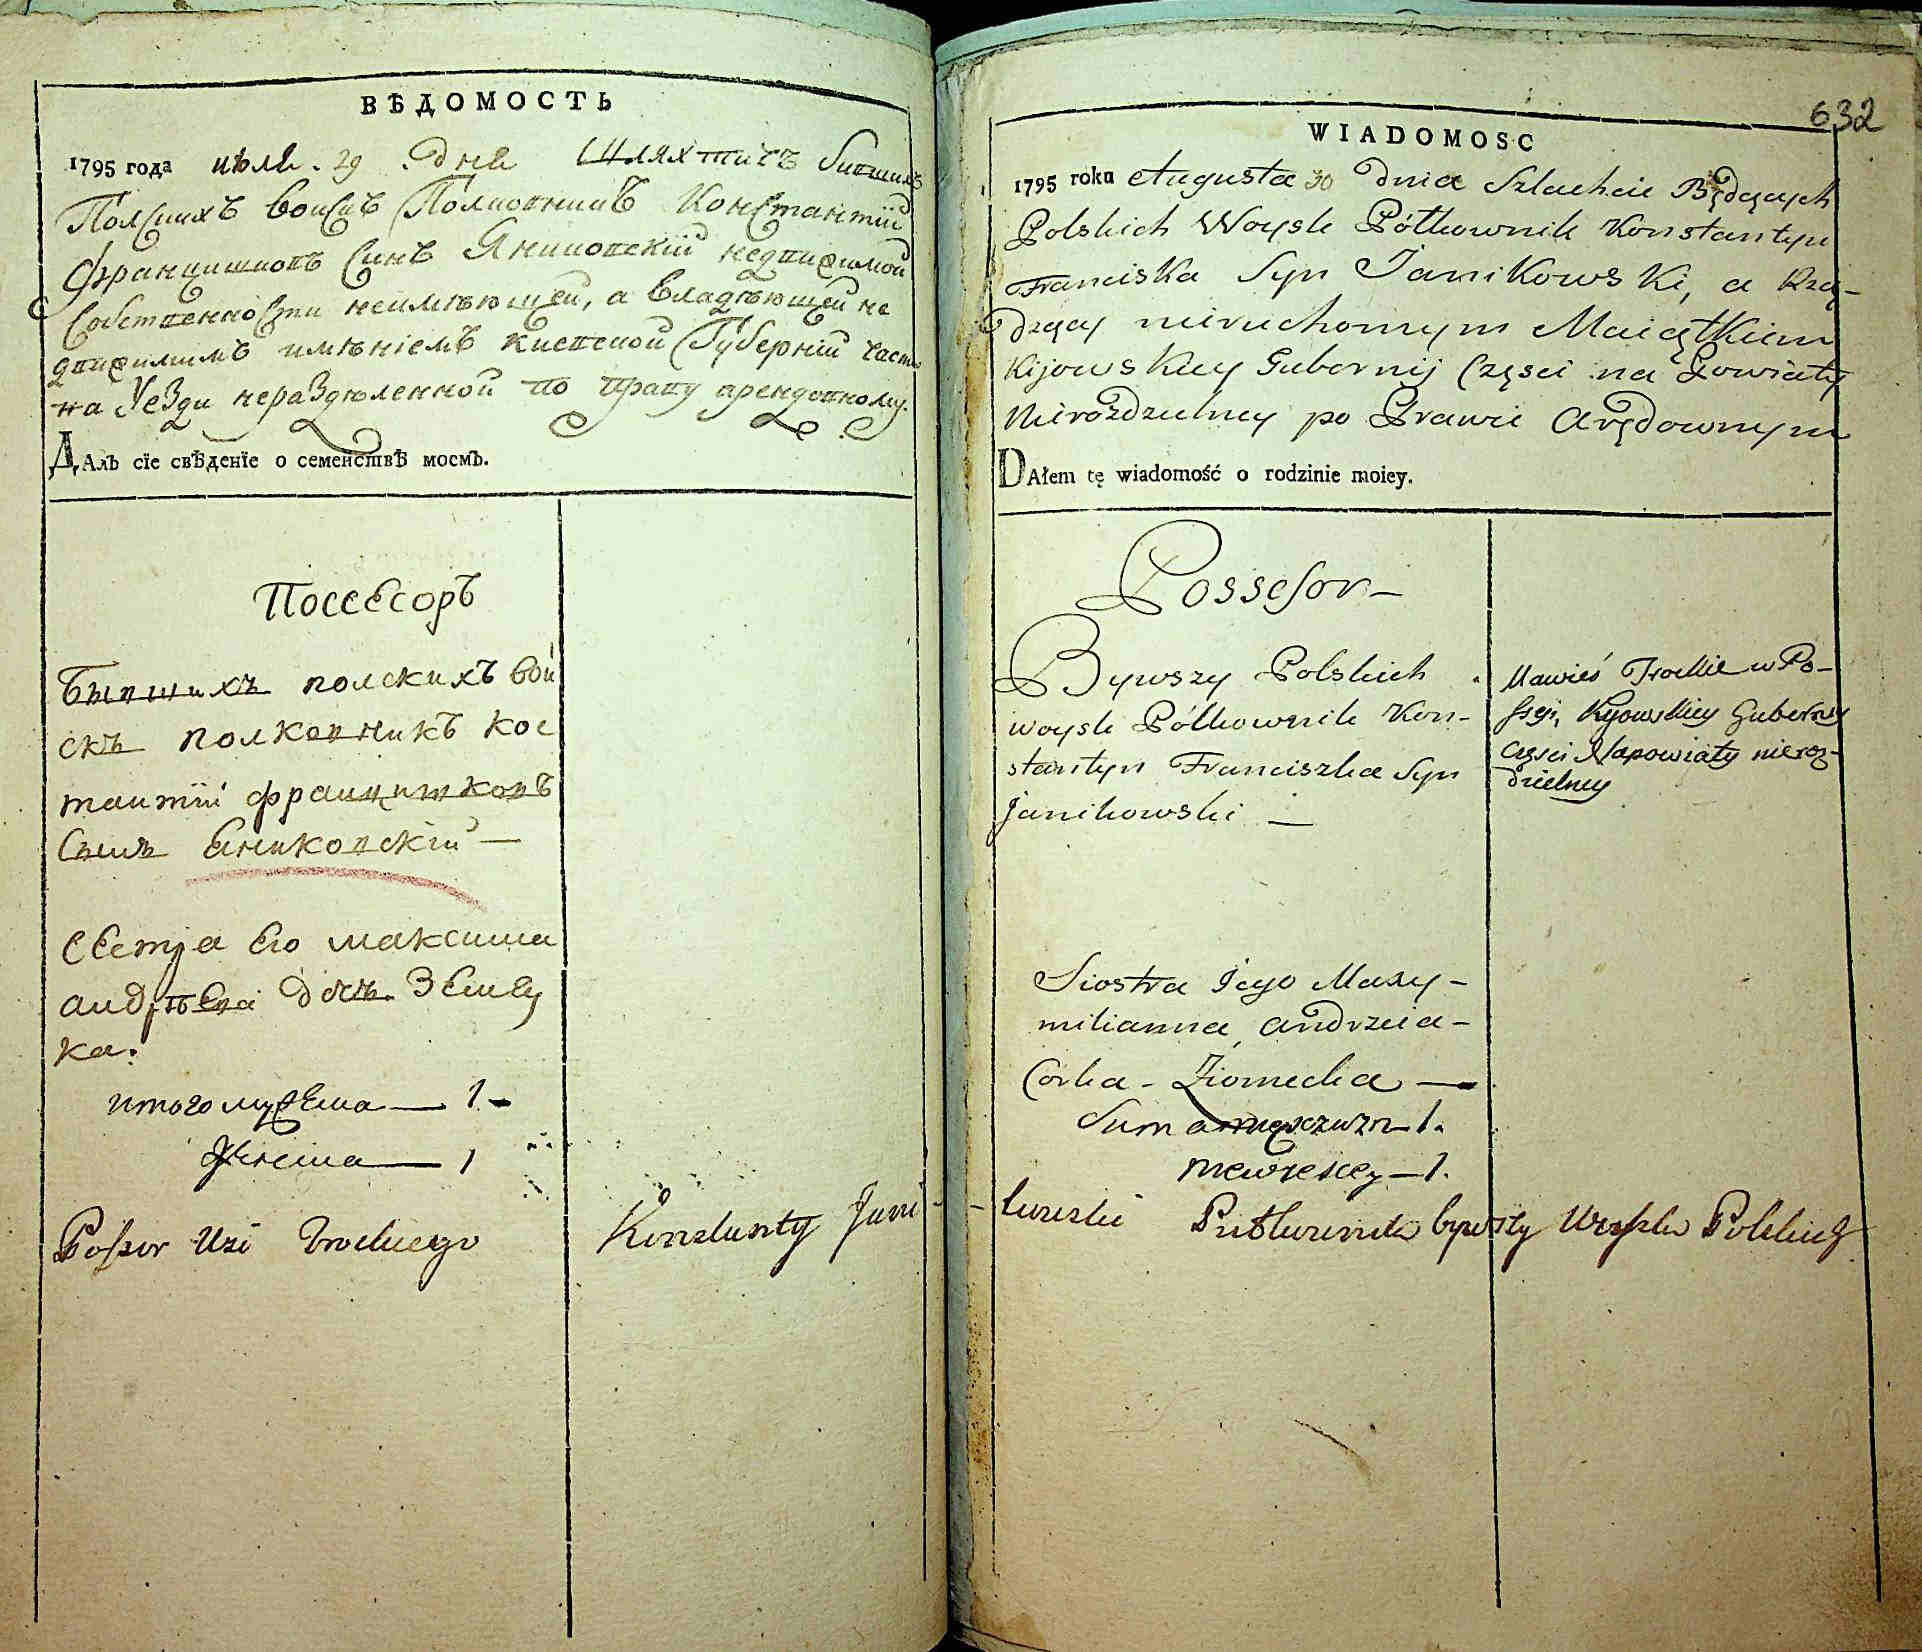 ВѢДОМОСТЬ
1795 года июля 29 дня Шляхтичъ бывшихъ
Полскихъ воискъ Полковникъ Константїй
Францишковъ Синъ Яниковскїй недвижимой
Собственности неимѣющей, а владѣющей не
движимимъ имѣнїемъ киевской Губернїи части
на Уезди нераздѣленной по праву арендовному.
ДАлъ сїе свѣденїе о семействѣ моемъ.
Поссесоръ
Бывшихъ полскихъ вой
скъ полковникъ кос
тантїй францишковъ
Сынъ Яниковскїй —
сестра Его максима
андрѣева дочь Земец
ка.
итого мужеска — 1 -
Женска — 1
Possor Wsi Trockiego Konstanty Jani-
632
WIADOMOSC
1795 roku Augusta 30 dnia Szlachcic Będących
Polskich Woysk Półkownik Konstantyn
Franciszka Syn Janikowski, a Rzą-
dzący nieruchomym Maiątkiem
Kijowskiey Gubernij Części na Powiaty
Nierozdzielney po Prawie Arędownym
DAłem tę wiadomość o rodzinie moiey.
Possesor —
Bywszy Polskich
woysk Półkownik Kon-
stantyn Franciszka Syn
Janikowski —
Mawieś Trockie w Po-
ssesji, Kijowskiey Guberny
Części Napowiaty nieroz-
dzielney
Siostra Jego Maxy-
milianna Andrzeia-
Corka - Ziomecka —
Suma męszczyzn — 1.
niewiescey — 1.
-kowski Pułkownik bywszy Woysk Polskich